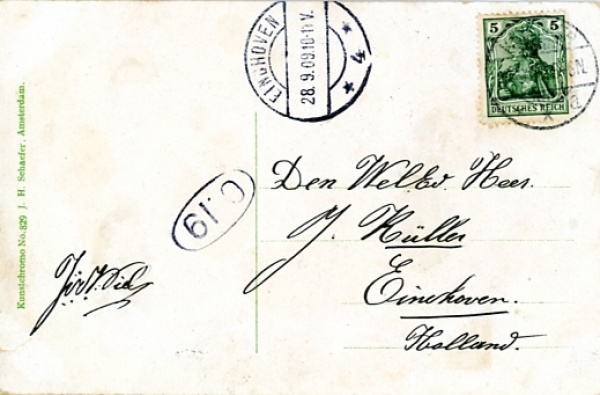 EINDHOVEN
28.9.09.10-11V.
4
5 5
DEUTSCHES REICH
Den WelEd. Heer.
J. Müller
Eindhoven.
Holland.
C.19
Kunstchromo No. 829 J. H. Schaefer, Amsterdam.